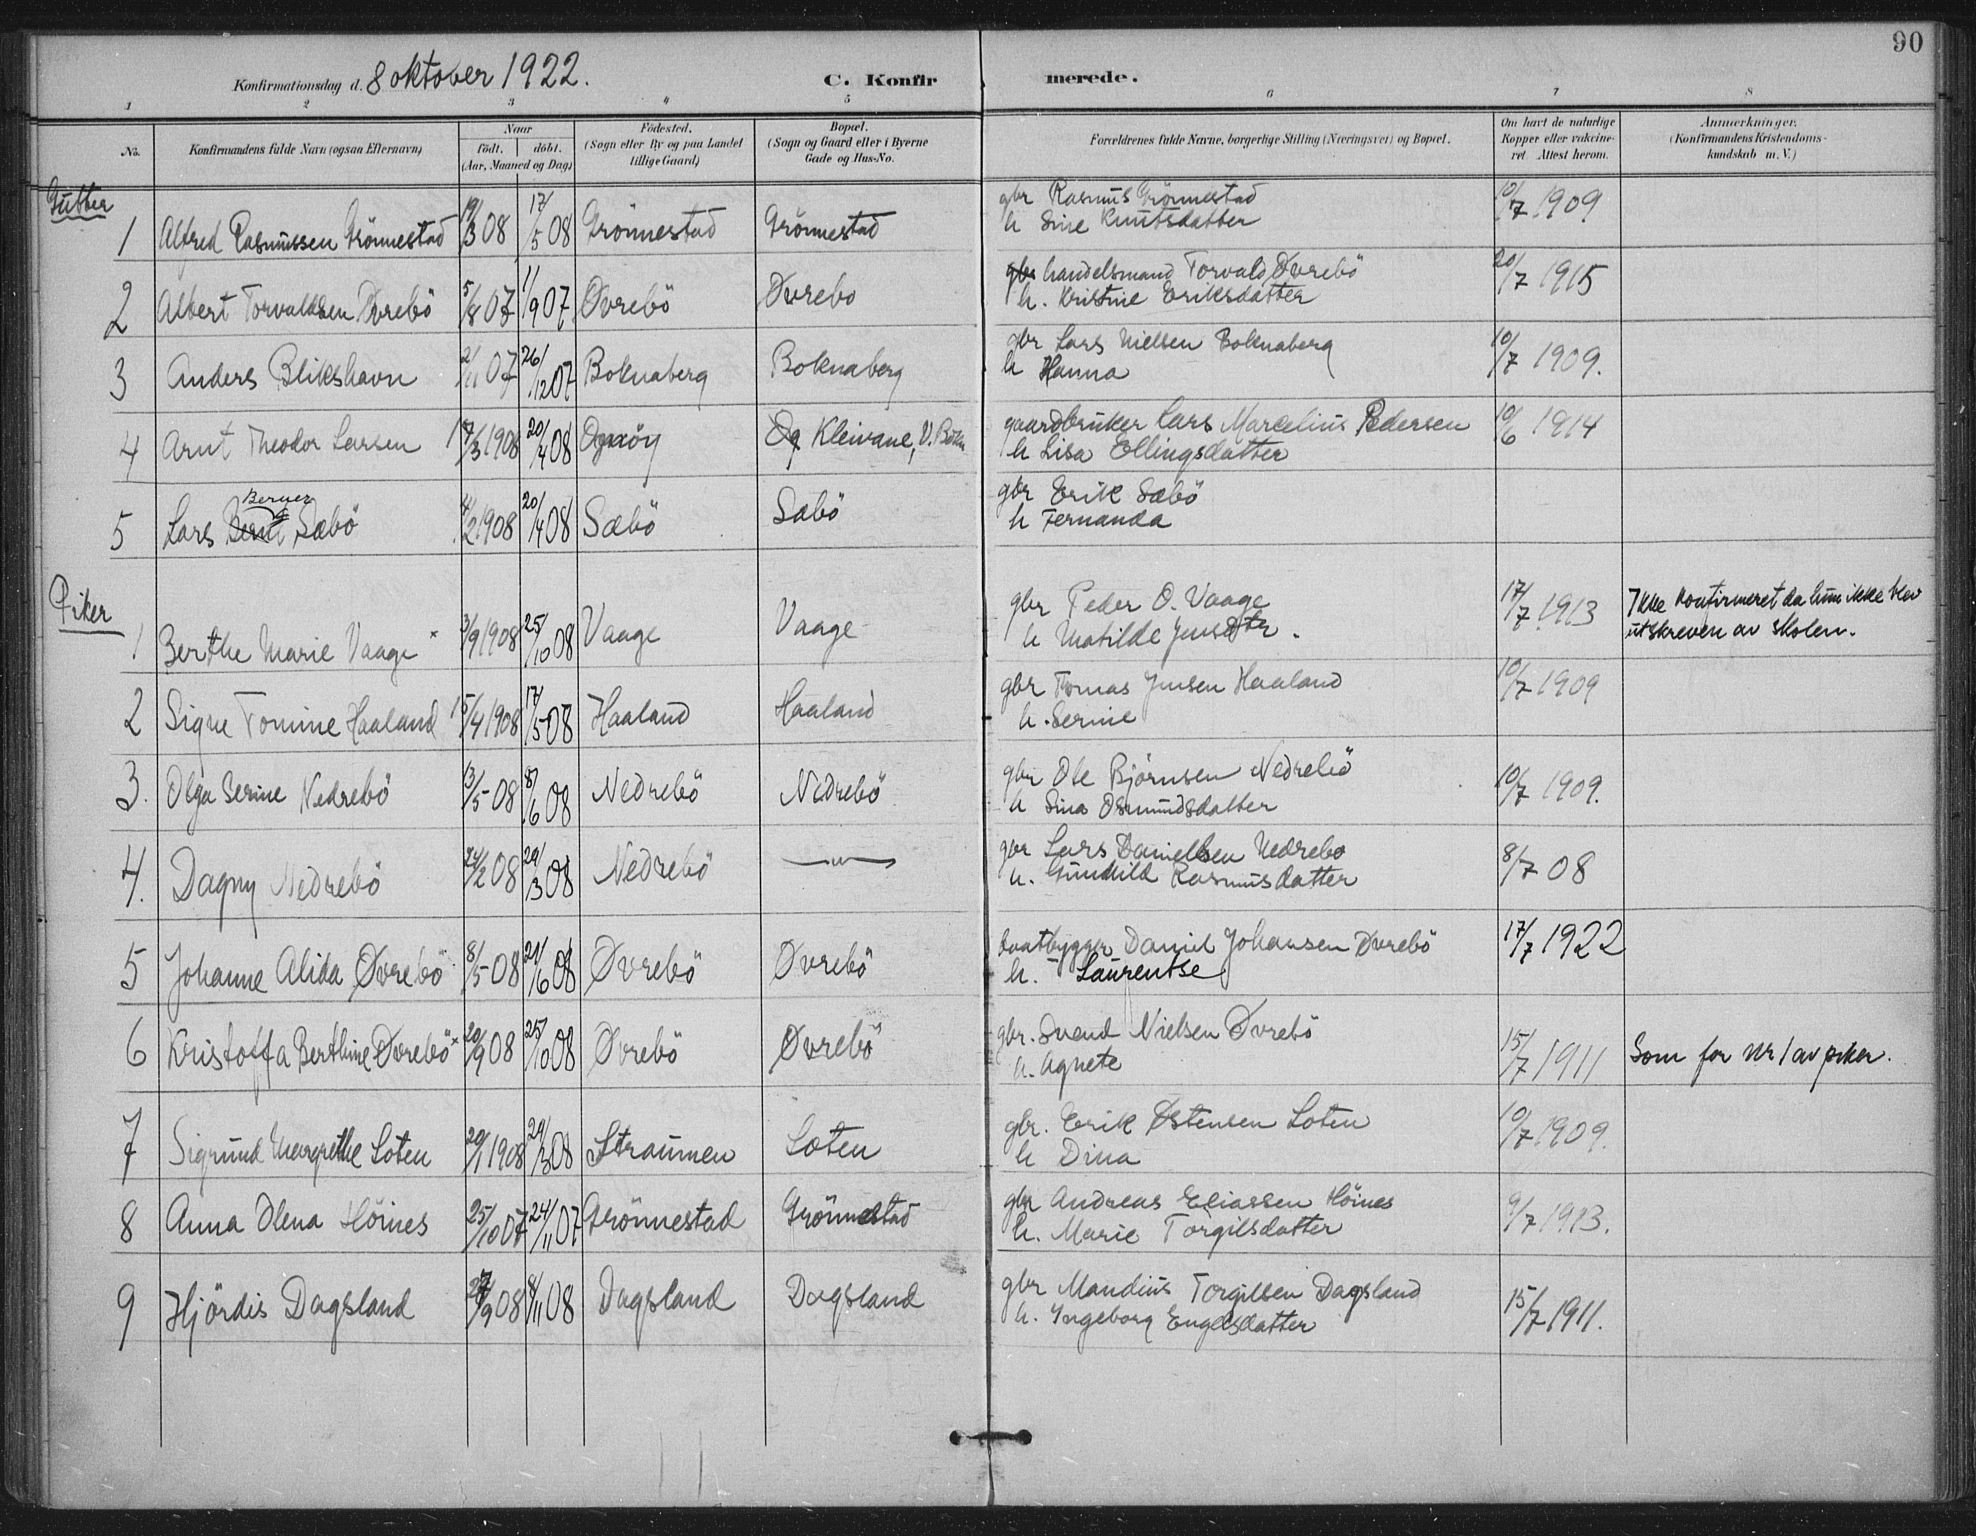 90
Konfirmationsdag d. 8 oktober 1922. C. Konfirmerede.
1 2 3 4 5 6 7 8
No. Konfirmandens fulde Navn (ogsaa Efternavn) Naar født. døbt. (Aar, Maaned og Dag) Fødested. (Sogn eller By og paa Landet tillige Gaard) Bopæl. (Sogn og Gaard eller i Byerne Gade og Hus-No. Forældrenes fulde Navne, borgerlige Stilling (Næringsvei) og Bopæl. Om havt de naturlige Kopper eller vaccineret. Attest herom. Anmærkninger. (Konfirmandens Kristendomskundskab m. V.)
Gutter
1 Alfred Rasmussen Grönnestad 19/3 08 17/5 08 Grönnestad Grönnestad gbr Rasmus Grönnestad 10/7 1909
h Sine Knutsdatter
2 Albert Torvaldsen Øvrebö 5/8 07 1/9 07 Øvrebö Øvrebo gbr handelsmand Torvald Øvrebö 20/7 1915
h. Kristine Eriksdatter
3 Anders Blikshavn 2/11 07 26/12 07 Boknaberg Boknaberg gbr Lars Nielsen Boknaberg 10/7 1909.
h Hanna
4 Arnt Theodor Larsen 17/3 1908 20/4 08 Ognöy Og Kleivane, V. Bokn gaardbruker Lars Marcelius Pedersen 10/6 1914
h Lisa Ellingsdatter
Berner
5 Lars Bernt Sæbö 4/2 1908 20/4 08 Sæbö Sæbö gbr Erik Sæbö
h Fernanda
Piker
1 Berthe Marie Vaage × 3/9 1908 25/10 08 Vaage Vaage gbr Peder O. Vaage 17/7 1913 Ikke konfirmeret da hun ikke blev
h Matilde Jensdtr. utskreven av skolen.
2 Signe Tomine Haaland 15/4 1908 17/5 08 Haaland Haaland gbr Tomas Jensen Haaland 10/7 1909
h. Serine
3. Olga Serine Nedrebö 13/5 08 8/6 08 Nedrebö Nedrebö gbr Ole Björnsen Nedrebö 10/7 1909.
h Sina Osmundsdatter
4. Dagny Nedrebö 24/2 08 29/3 08 Nedrebö —"— gbr Lars Danielsen Nedrebo 8/7 08
h. Gunhild Rasmusdatter
5 Johanne Alida Øvrebö 8/5 08 21/6 08 Øvrebö Øvrebö baatbygger Daniel Johansen Øvrebö 17/7 1922
h. Laurentse
6 Kristoffa Berthine Øvrebö × 20/9 08 25/10 08 Øvrebö Øvrebö gbr. Svend Nielsen Øvrebö 15/7 1911 Som for nr 1 av piker.
h. Agnete
7 Sigrund Margrethe Loten 20/1 1908 29/3 08 Straumen Loten gbr. Erik Østensen Loten 10/7 1909.
h Dina
8 Anna Olena Höines 25/10 07 24/11 07 Grönnestad Grönnestad gbr Andreas Eliassen Höines 9/7 1913.
h. Marie Torgilsdatter
9 Hjördis Dagsland 27/9 08 8/11 08 Dagsland Dagsland gbr Mandius Torgilsen Dagsland 15/7 1911.
h. Ingeborg Engelsdatter